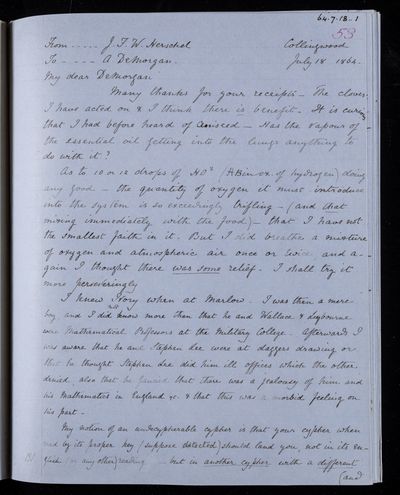 64.7.18.1
53
From ..... J. F. W. Herschel Collingwood
To ..... A DeMorgan. July 18 1864.
My dear DeMorgan
Many thanks for your receipts - The cloves
I have acted on & I think there is benefit. It is curious
that I had before heard of Aniseed - Has the vapour of
the essential oil getting into the lungs anything to
do with it?
As to 10 or 12 drops of HO² (H Binox. of hydrogen) doing
any good - the quantity of oxygen it must introduce
into the system is so exceedingly trifling - (and that
mixing immediately with the food) - that I have not
the smallest faith in it. But I did breathe a mixture
of oxygen and atmospheric air once or twice, and a-
gain I thought there was some relief. I shall try it
more perseveringly
I knew Ivory when at Marlow. I was then a mere
boy, and I did not know more than that he and Wallace & Leybourne
were Mathematical Professors at the Military College. Afterwards I
was aware that he and Stephen Lee were at daggers drawing or
that he thought Stephen Lee did him ill offices which the other
denied, also that he fancied that there was a jealousy of him and
his Mathematics in England &c. & that this was a morbid feeling on
his part -
My notion of an undecypherable cypher is that your cypher when
read by its proper key (suppose detected) should land you, not in its En-
glish (or any other) reading - but in another cypher with a different
(and